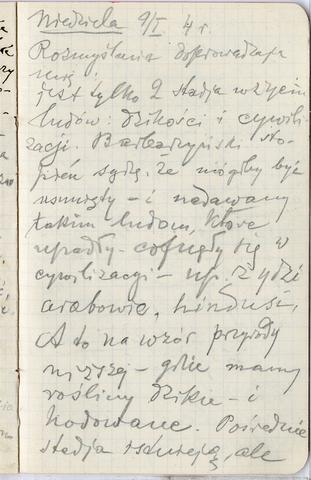 Niedziela 9/I 4 r.
Rozmyślania doprowadzają
mię:
jest tylko 2 stadja w życiu
ludów: dzikości i cywili-
zacji. Barbarzyński sto-
pień sądzę, że mógłby być
usunięty – i nadawany
takim ludom, które
upadły – cofnęły się w
cywilizacji – np. Żydzi
arabowie, hindusi,
A to na wzór przyrody
niższej – gdzie mamy
rośliny dzikie – i
hodowane. Pośrednie
stadja istnieją, ale